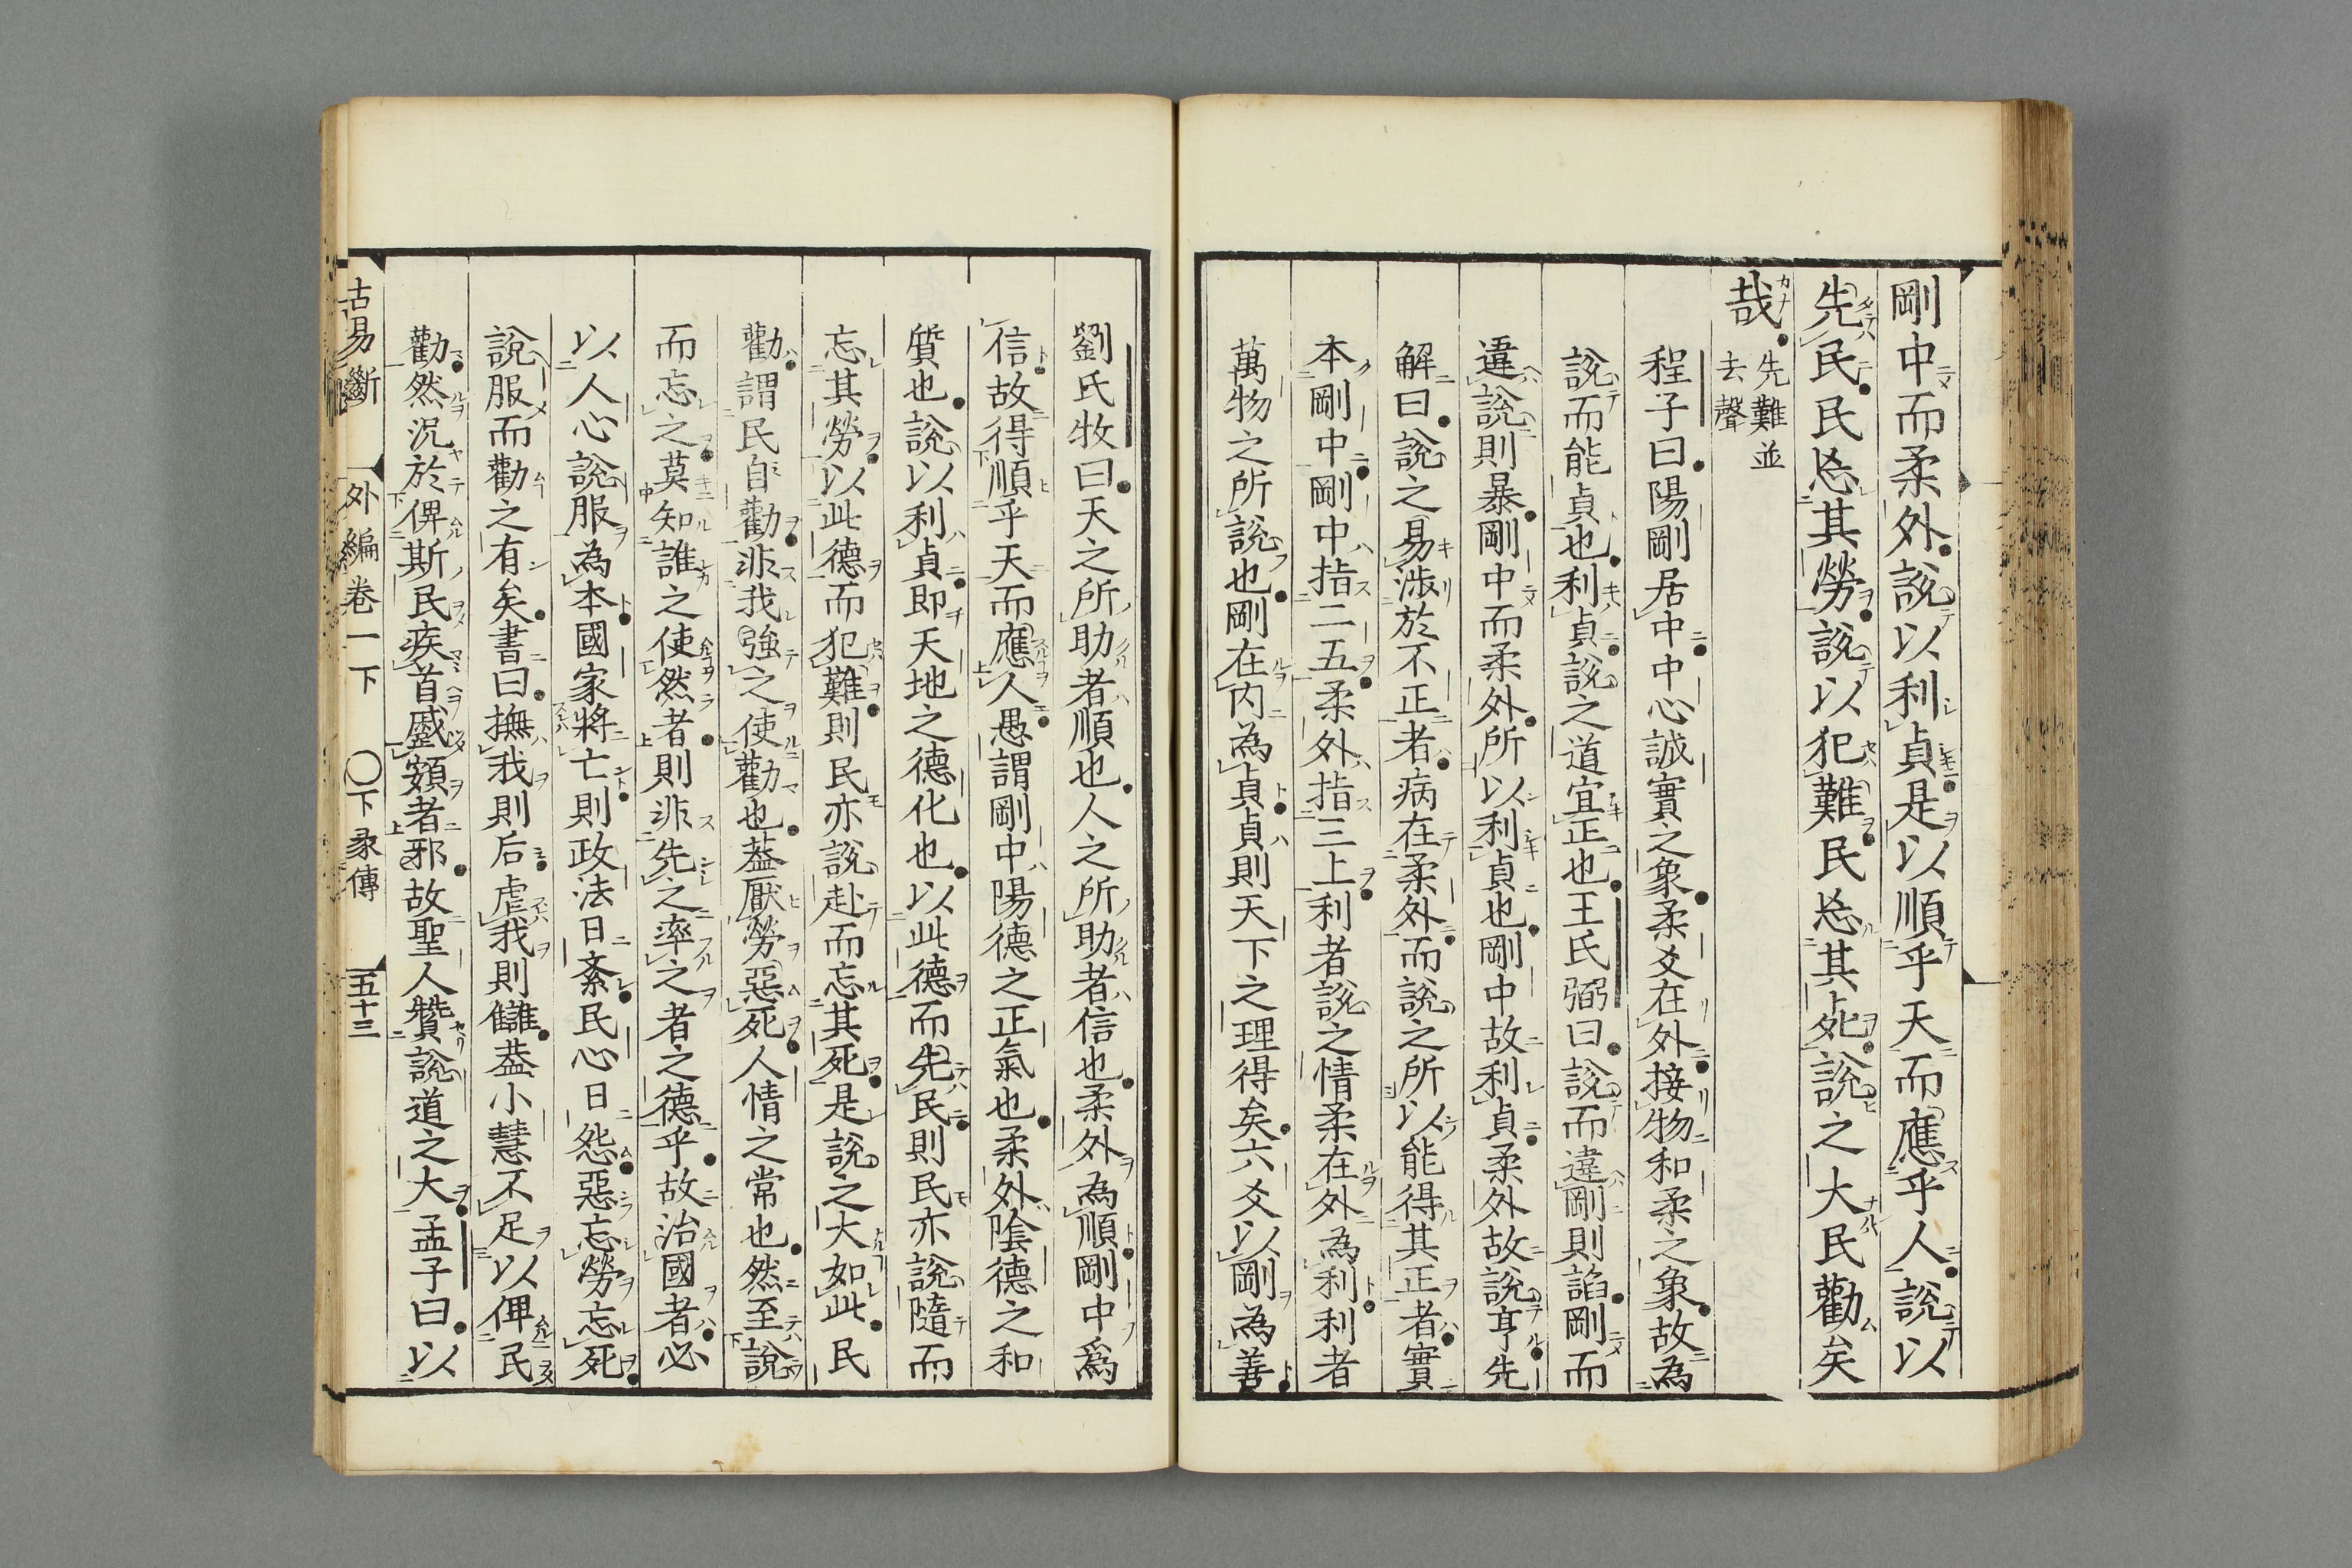 剛中而柔外說以利貞是以順乎天而應乎人說以
先民民忘其勞說以犯難民忘其死說之大民勸矣
哉
先難並
去聲
程子曰陽剛居中中心誠實之象柔爻在外接物和柔之象故為
說而能貞也利貞說之道宜正也王氏弼曰說而違剛則諂剛而
違說則暴剛中而柔外所以利貞也剛中故利貞柔外故說亨先
解曰說之易涉於不正者病在柔外而說之所以能得其正者實
本剛中剛中指二五柔外指三上利者說之情柔在外為利利者
萬物之所說也剛在內為貞貞則天下之理得矣六爻以剛為善
劉氏牧曰天之所助者順也人之所助者信也柔外為順剛中爲
信故得順乎天而應人愚謂剛中陽德之正氣也柔外陰德之和
質也說以利貞即天地之德化也以此德而先民則民亦說隨而
忘其勞以此德而犯難則民亦說赴而忘其死是說之大如此民
勸謂民自勸非我強之使勸也葢厭勞惡死人情之常也然至說
而忘之莫知誰之使然者則非先之率之者之德乎故治國者必
以人心說服為本國家將亡則政法日紊民心日怨惡忘勞忘死
說服而勸之有矣書曰撫我則后虐我則讎葢小慧不足以俾民
勸然況於俾斯民疾首蹙頞者邪故聖人贊說道之大孟子曰以
古易斷　外編卷一下　○下彖傳　五十三